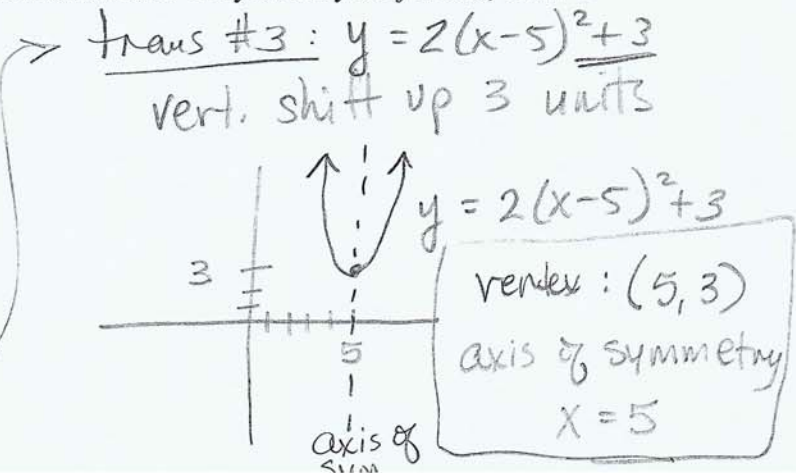 > trans #3: y = 2(x-5)²+3
vert. shift up 3 units
y = 2(x-5)²+3
3
5
vertex : (5,3)
axis of symmetry
x = 5
axis of
sym